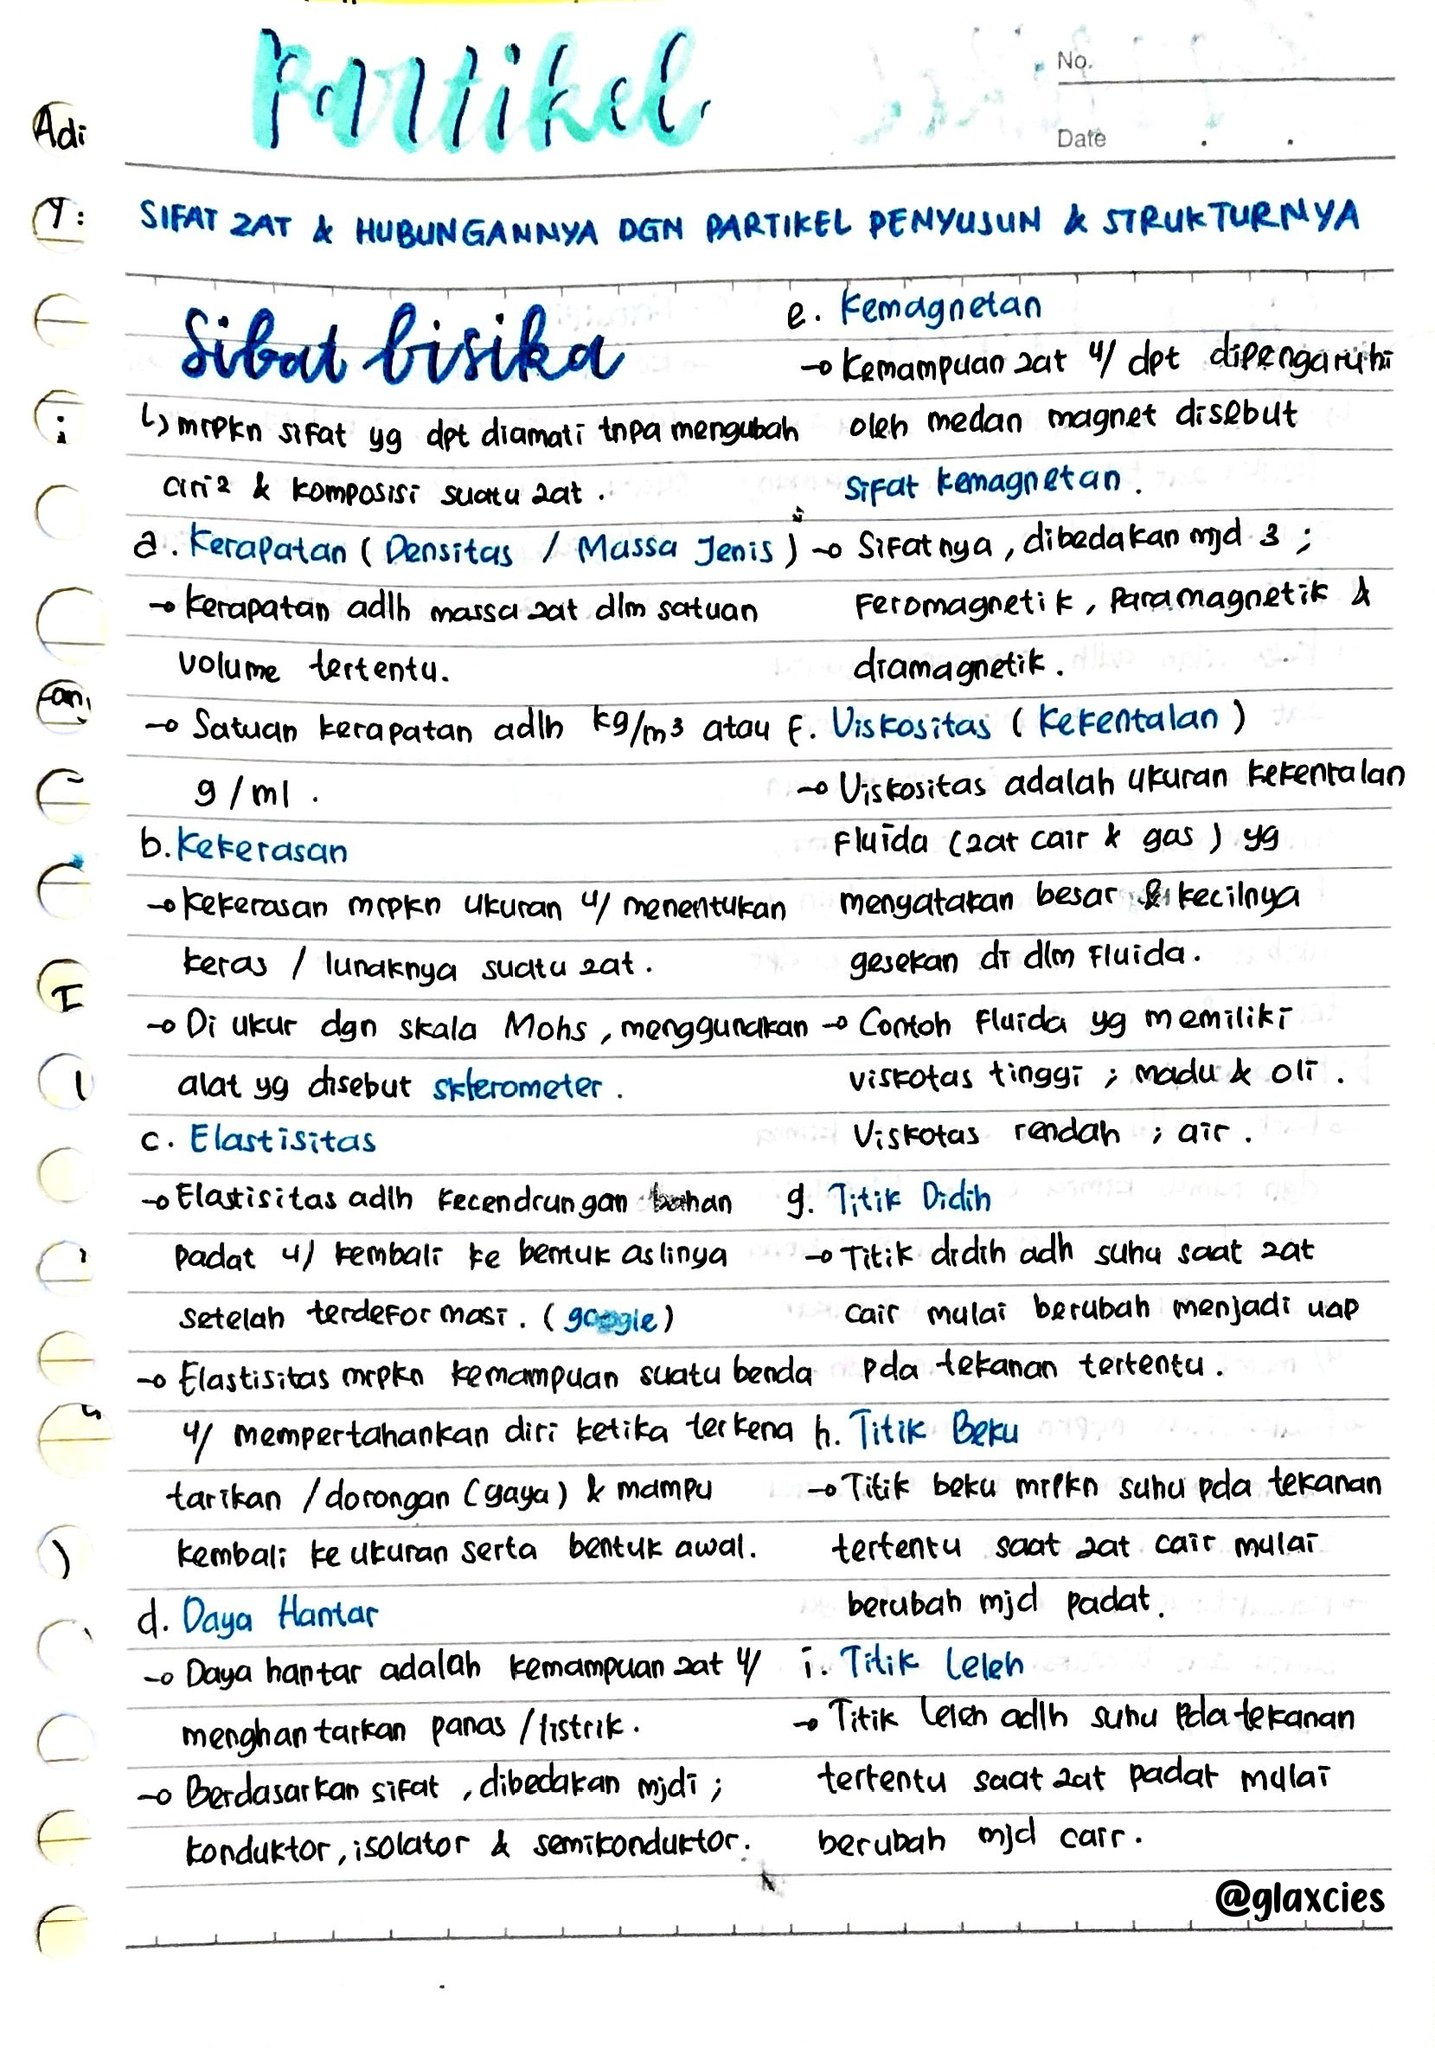 Partikel
No.
Date
SIFAT ZAT & HUBUNGANNYA DGN PARTIKEL PENYUSUN & STRUKTURNYA
Sifat fisika
↳ mrpkn sifat yg dpt diamati tnpa mengubah
ciri2 & komposisi suatu zat.
a. Kerapatan (Densitas / Massa Jenis)
→ Kerapatan adlh massa zat dlm satuan
volume tertentu.
→ Satuan kerapatan adlh kg/m3 atau
g/ml.
b. Kekerasan
→ Kekerasan mrpkn ukuran u/ menentukan
keras / lunaknya suatu zat.
→ Di ukur dgn skala Mohs, menggunakan
alat yg disebut sklerometer.
c. Elastisitas
→ Elastisitas adlh kecendrungan bahan
padat u/ kembali ke bentuk aslinya
setelah terdeformasi. (google)
→ Elastisitas mrpkn kemampuan suatu benda
u/ mempertahankan diri ketika terkena
tarikan / dorongan (gaya) & mampu
kembali ke ukuran serta bentuk awal.
d. Daya Hantar
→ Daya hantar adalah kemampuan zat u/
menghantarkan panas / listrik.
→ Berdasarkan sifat, dibedakan mjdi ;
konduktor, isolator & semikonduktor.
e. Kemagnetan
→ Kemampuan zat u/ dpt dipengaruhi
oleh medan magnet disebut
sifat kemagnetan.
→ Sifatnya, dibedakan mjd 3 ;
Feromagnetik, Paramagnetik &
diamagnetik.
f. Viskositas (Kekentalan)
→ Viskositas adalah ukuran kekentalan
Fluida (zat cair & gas) yg
menyatakan besar & kecilnya
gesekan di dlm Fluida.
→ Contoh Fluida yg memiliki
viskotas tinggi ; madu & oli.
Viskotas rendah ; air.
g. Titik Didih
→ Titik didih adh suhu saat zat
cair mulai berubah menjadi uap
pda tekanan tertentu.
h. Titik Beku
→ Titik beku mrpkn suhu pda tekanan
tertentu saat zat cair mulai
berubah mjd padat.
i. Titik Leleh
→ Titik leleh adlh suhu pda tekanan
tertentu saat zat padat mulai
berubah mjd cair.
@glaxcies